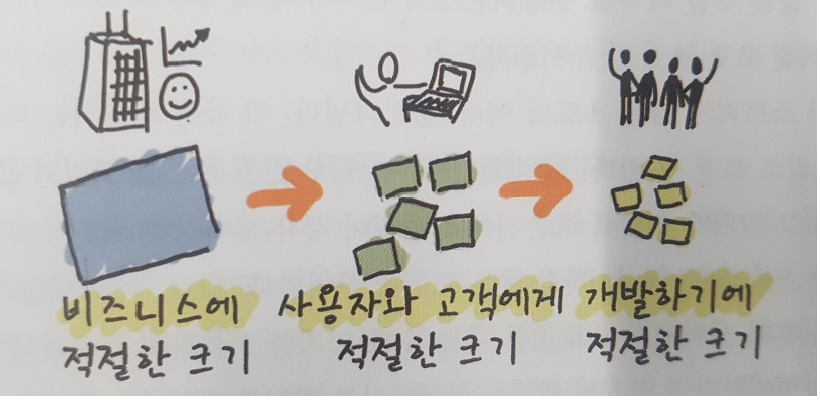 비즈니스에
적절한 크기
사용자와 고객에게
적절한 크기
개발하기에
적절한 크기